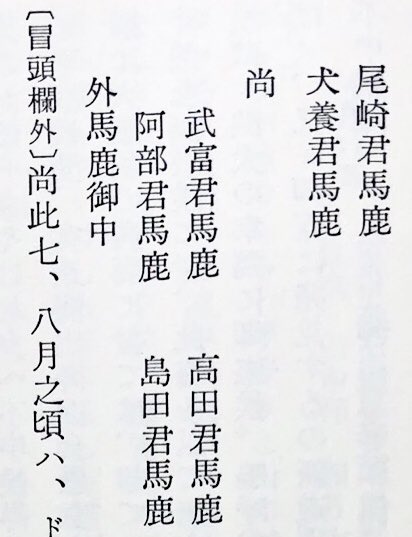 尾崎君馬鹿
犬養君馬鹿
尚
武富君馬鹿　高田君馬鹿
阿部君馬鹿　島田君馬鹿
外馬鹿御中
〔冒頭欄外〕尚此七、八月之頃ハ、ド